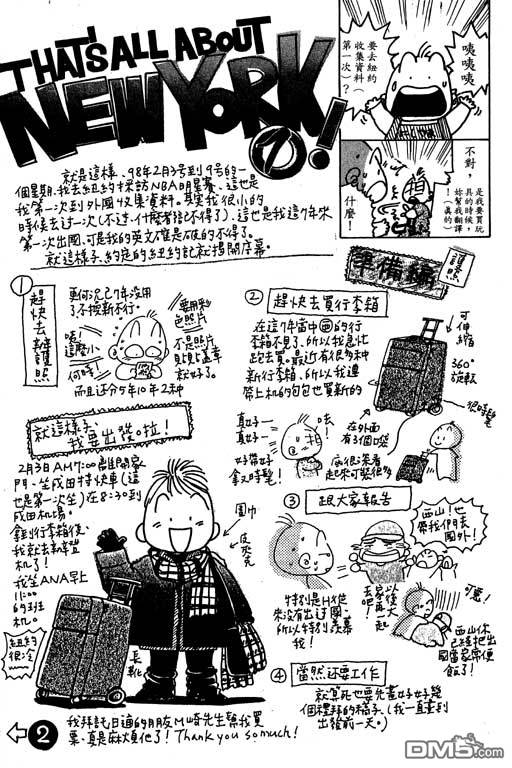 THAT'S ALL ABOUT
NEW YORK! ①
咦咦咦
要去紐約
收集資料
(第一次)?
不對,
是我要買玩
具的時候,
妳幫我翻譯
(真的)
什麼!
就是這樣、98年2月3号到9号的一
個星期、我去紐約採訪NBA明星賽、這也是
我第一次到外國收集資料。其実我很小的
時候去过一次(不过、什麼都記不得了)、這也是我這7年來
第一次出國、可是我的英文確是破的不得了。
就這樣子、約定的紐約記就揭開序幕。
準備編
①
趕快去辦護照
更何況已7年没用
了不換新不行。
咦!
這麼小
何時
要用彩
色照片
不是照片
貝占貝占蓋章
就好了。
而且还分5年10年2种
② 趕快去買行李箱
在這7年當中的行
李箱不見了、所以我急忙
跑去買。最近有很多种
新行李箱、所以我連
帶上机的包包也買新的
可伸縮
360°
旋転
很時髦
在外面
有3個喔
真好一
真好一
好帶好
拿又時髦!
咦!
底很深看
起來可裝很多
就這樣子、
我要出發啦!
2月3日AM7:00離開家
門、坐成田特快車(這
也是第一次坐)在8:30到
成田机場。
拿到行李箱後、
我就去辦登
机了!
我坐ANA早上
11:00
的班
机。
紐約
很冷~
圍巾
皮夾克
長靴
③ 跟大家報告
西山!也
帶我們去
國外!
特別是H他
來没有出过國、
所以特別羨慕
我!
下次
大家
一起
去吧!
可悪!
西山休
已経把出
國當家常便
飯了!
④ 當然还要工作
就算死也要先畫好好幾
個礼拜的稿子、(我一直畫到
出發前一天。)
2
我拜託日通的朋友M崎先生幫我買
票、真是麻煩他了! Thank you so much!
DM5.com